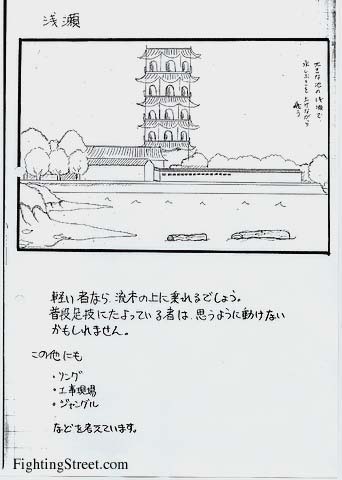 浅瀬
大きな池の浅瀬で、
水しぶきを上げながら
戦う
軽い者なら、流木の上に乗れるでしょう。
普段足技にたよっている者は、思うように動けない
かもしれません。
この他にも
・リング
・工事現場
・ジャングル
などを考えています。
FightingStreet.com